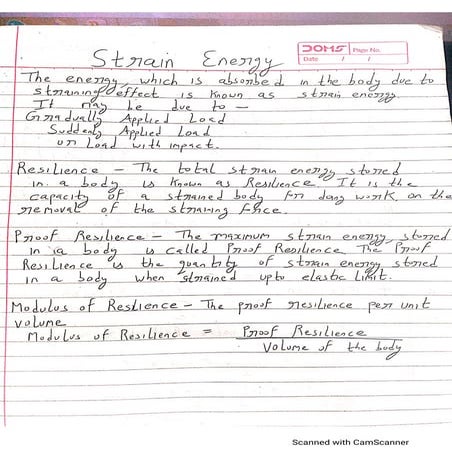 DOMS Page No.
Date / /
Strain Energy
The energy, which is absorbed in the body due to
straining effect is known as strain energy
It may be due to –
Gradually Applied Load
Suddenly Applied Load
or Load with impact.
Resilience – The total strain energy stored
in a body is known as Resilience. It is the
capacity of a strained body for doing work, on the
removal of the straining force.
Proof Resilience – The maximum strain energy, stored
in a body is called Proof Resilience The Proof
Resilience is the quantity of strain energy stored
in a body when strained upto elastic limit.
Modulus of Reslience – The proof resilience per unit
volume
Modulus of Resilience = Proof Resilience
Volume of the body
Scanned with CamScanner